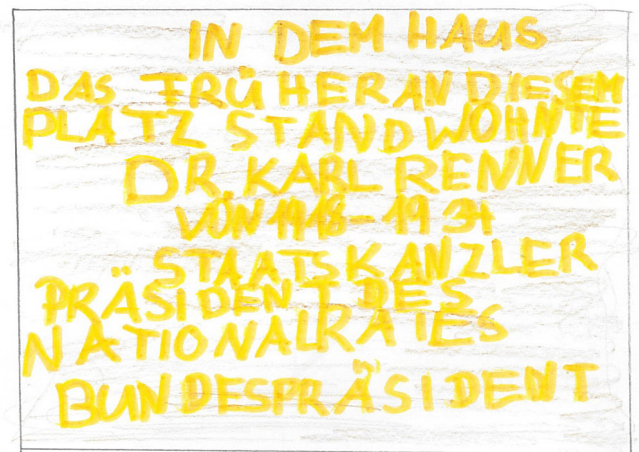 IN DEM HAUS
DAS FRÜHER AN DIESEM
PLATZ STAND WOHNTE
DR. KARL RENNER
VON 1918-1934
STAATSKANZLER
PRÄSIDENT DES
NATIONALRATES
BUNDESPRÄSIDENT